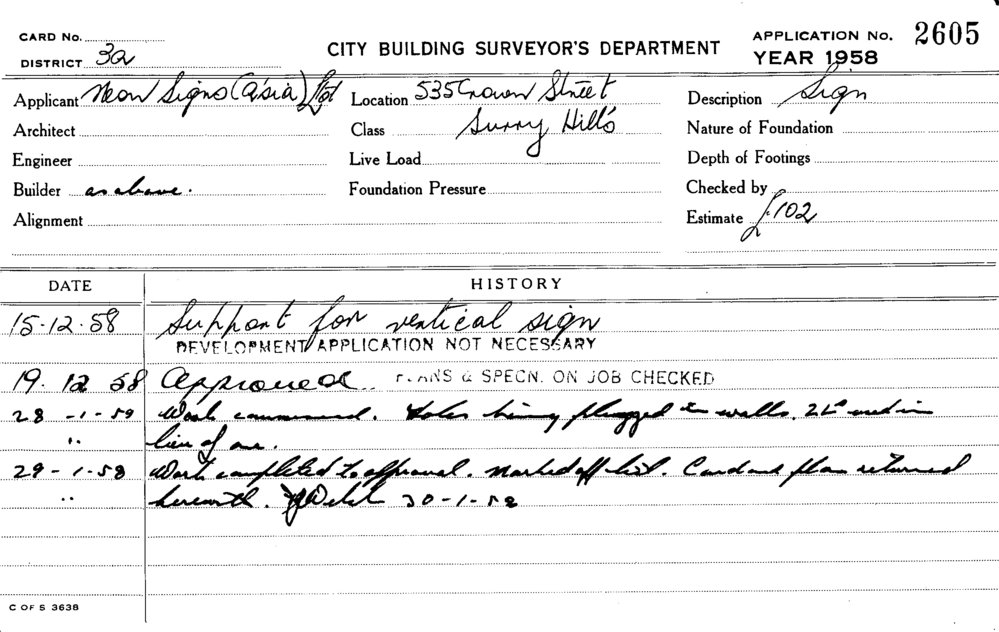 CARD No.
DISTRICT 3a
CITY BUILDING SURVEYOR'S DEPARTMENT
APPLICATION No. 2605
YEAR 1958
Applicant Neon Signs (A'sia) Ltd
Location 535 Crown Street
Description Sign
Architect
Class Surry Hills
Nature of Foundation
Engineer
Live Load
Depth of Footings
Builder as above.
Foundation Pressure
Checked by
Alignment
Estimate £102
DATE
HISTORY
15-12-58 Support for vertical sign
DEVELOPMENT APPLICATION NOT NECESSARY
19.12 58 Approved PLANS & SPECN. ON JOB CHECKED
28-1-59 Work commenced. Holes being plugged in walls.
" lieu of one.
29-1-58 Work completed to approval. Marked off list. Card and plan returned
" herewith. Welch 30-1-58
C OF S 3638